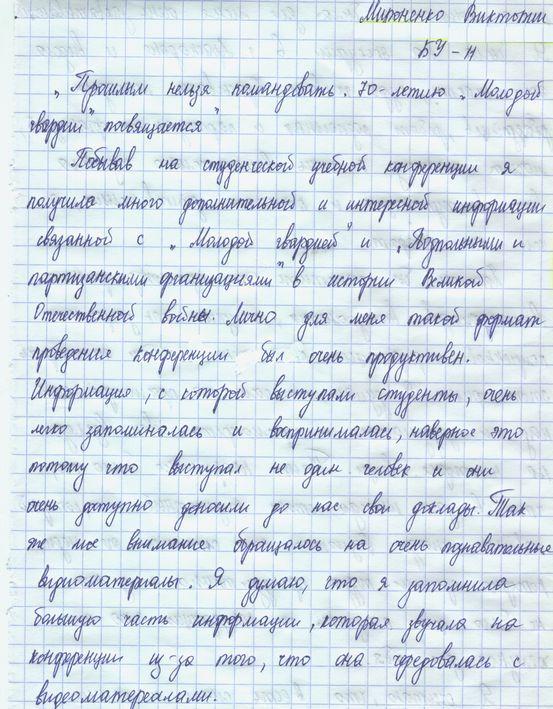 Мироненко Виктории
БУ-н
„Прошлым нельзя командовать. 70-летию „Молодой
гвардии" посвящается"
Побывав на студенческой учебной конференции я
получила много дополнительной и интересной информации
связанной с „Молодой гвардией" и „Подпольными и
партизанскими организациями" в истории Великой
Отечественной войны. Лично для меня такой формат
проведения конференции был очень продуктивен.
Информация, с которой выступали студенты, очень
легко запоминалась и воспринималась, наверное это
потому что выступал не один человек и они
очень доступно доносили до нас свои доклады. Так
же мое внимание обращалось на очень познавательные
видиоматериалы. Я думаю, что я запомнила
большую часть информации, которая звучала на
конференции из-за того, что она чередовалась с
видеоматереалами.